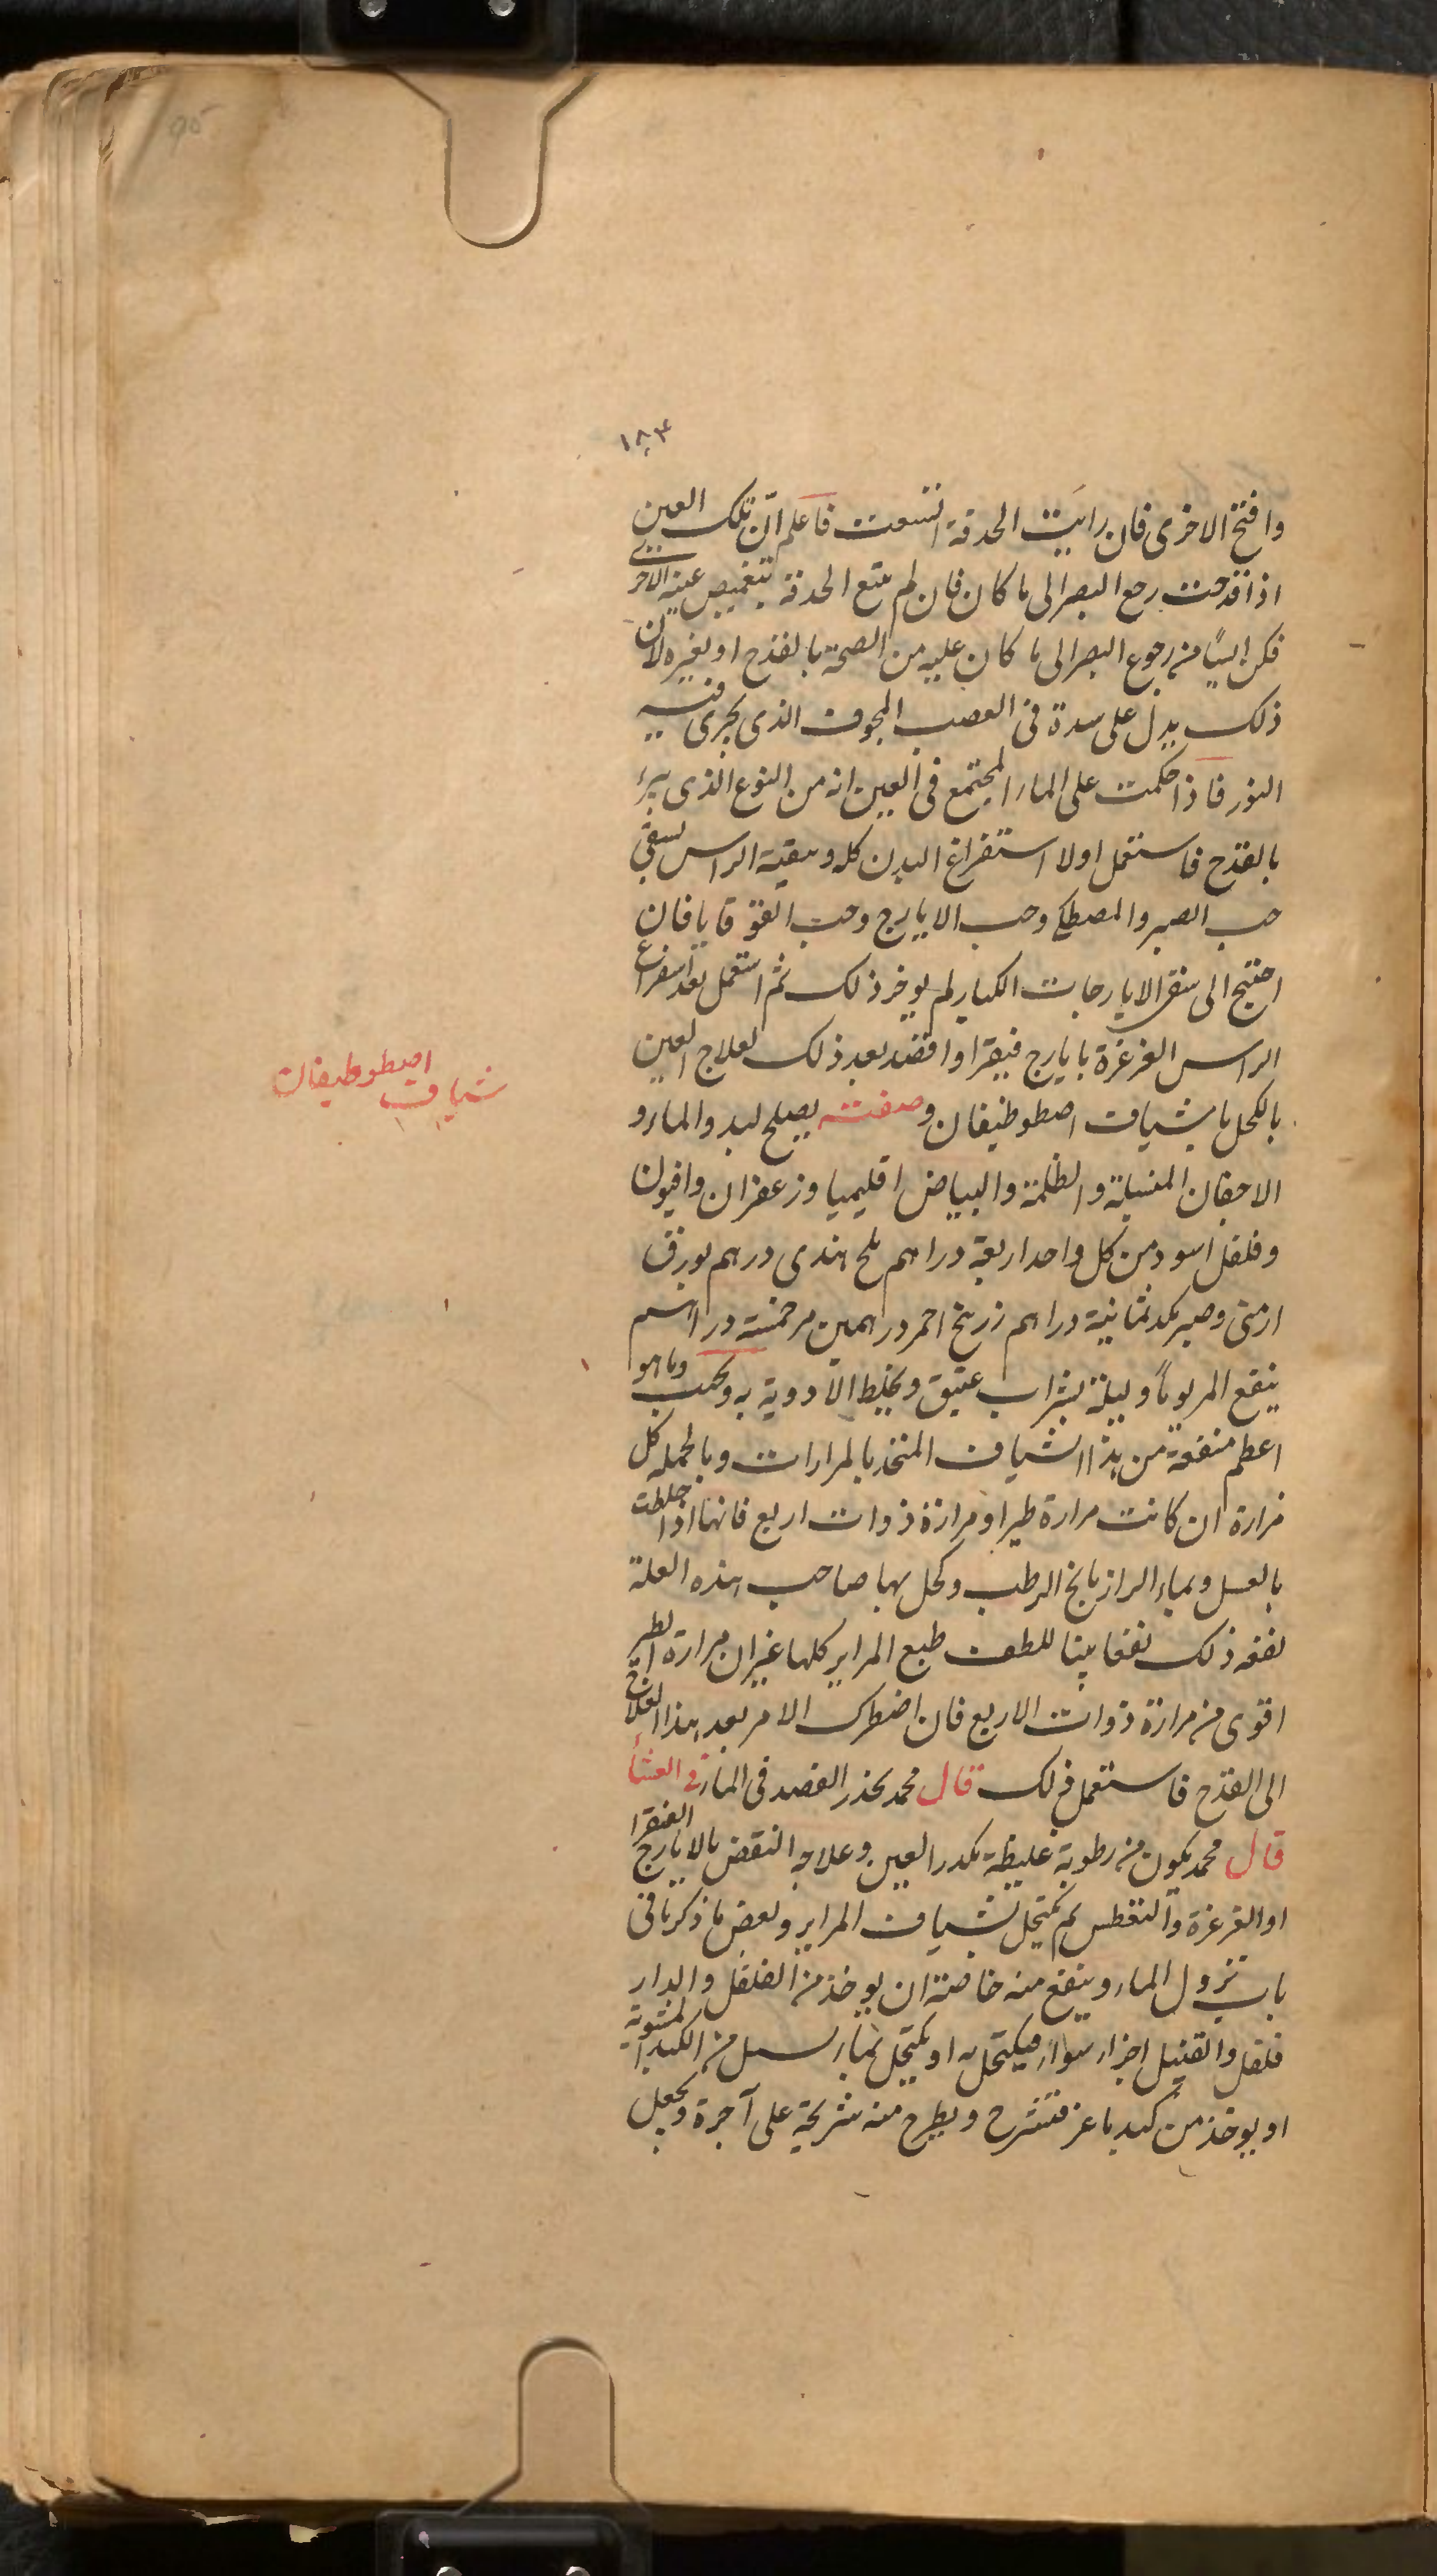 ١٨٣
وافتح الاخرى فان رايت الحدقة اتسعت فاعلم ان تلك العين
اذا قدحت رجع البصر الى ما كان فان لم تتسع الحدقة بتغميض عينه الاخرى
فكن ايسًا من رجوع البصر الى ما كان عليه من الصحة بالقدح او بغيره لان
ذلك يدل على سدة فى العصب المجوف الذى يجرى فيه
النور فاذا حكمت على الماء المجتمع فى العين انه من النوع الذى يبرء
بالقدح فاستعمل اولا استفراغ البدن كله وتنقية الراس بسقى
حب الصبر والمصطكى وحب الايارج وحب القوقايا فان
احتيج الى سقى الايارجات الكبار لم يوخر ذلك ثم استعمل بعد استفراغ
الراس الغرغرة بايارج فيقرا واقصد بعد ذلك لعلاج العين
بالكحل باشياف اصطوطيفان وصفته يصلح لبدو الماء و
الاجفان المنسبلة والظلمة والبياض اقليميا وزعفران وافيون
وفلفل اسود من كل واحد اربعة دراهم ملح هندى درهم بورق
ارمنى وصبر مكد ثمانية دراهم زرنيخ احمر درهمين مر خمسة دراهم
ينقع المر يوماً وليلة بشراب عتيق ويخلط الادوية به ويحبب وما هو
اعظم منفعة من هذا الشياف المتخذ بالمرارات وبالجمله كل
مرارة ان كانت مرارة طير او مرارة ذوات اربع فانها اذا خلطت
بالعسل وبماء الرازيانج الرطب وكحل بها صاحب هذه العلة
نفعه ذلك نفعا بينا للطف طبع المراير كلها غير ان مرارة الطير
اقوى من مرارة ذوات الاربع فان اضطرك الامر بعد هذا العلاج
الى القدح فاستعمل ذلك قال محمد يحذر الفصد فى الماء فى العشا
قال محمد يكون من رطوبة غليظة تكدر العين وعلاجه النقض بالايارج الفيقرا
او الغرغرة والتعطس ثم يكتحل بشياف المراير وبعض ما ذكرنا فى
باب نزول الماء وينفع منه خاصة ان يوخذ من الفلفل والدار
فلفل والقنبيل اجزاء سواء فيكتحل به او يكتحل بماء يسيل من الكبد المشوية
او يوخذ من كبد ماعز فتشرح ويطرح منه شريحة على آجرة ويجعل
شياف اصطوطيفان